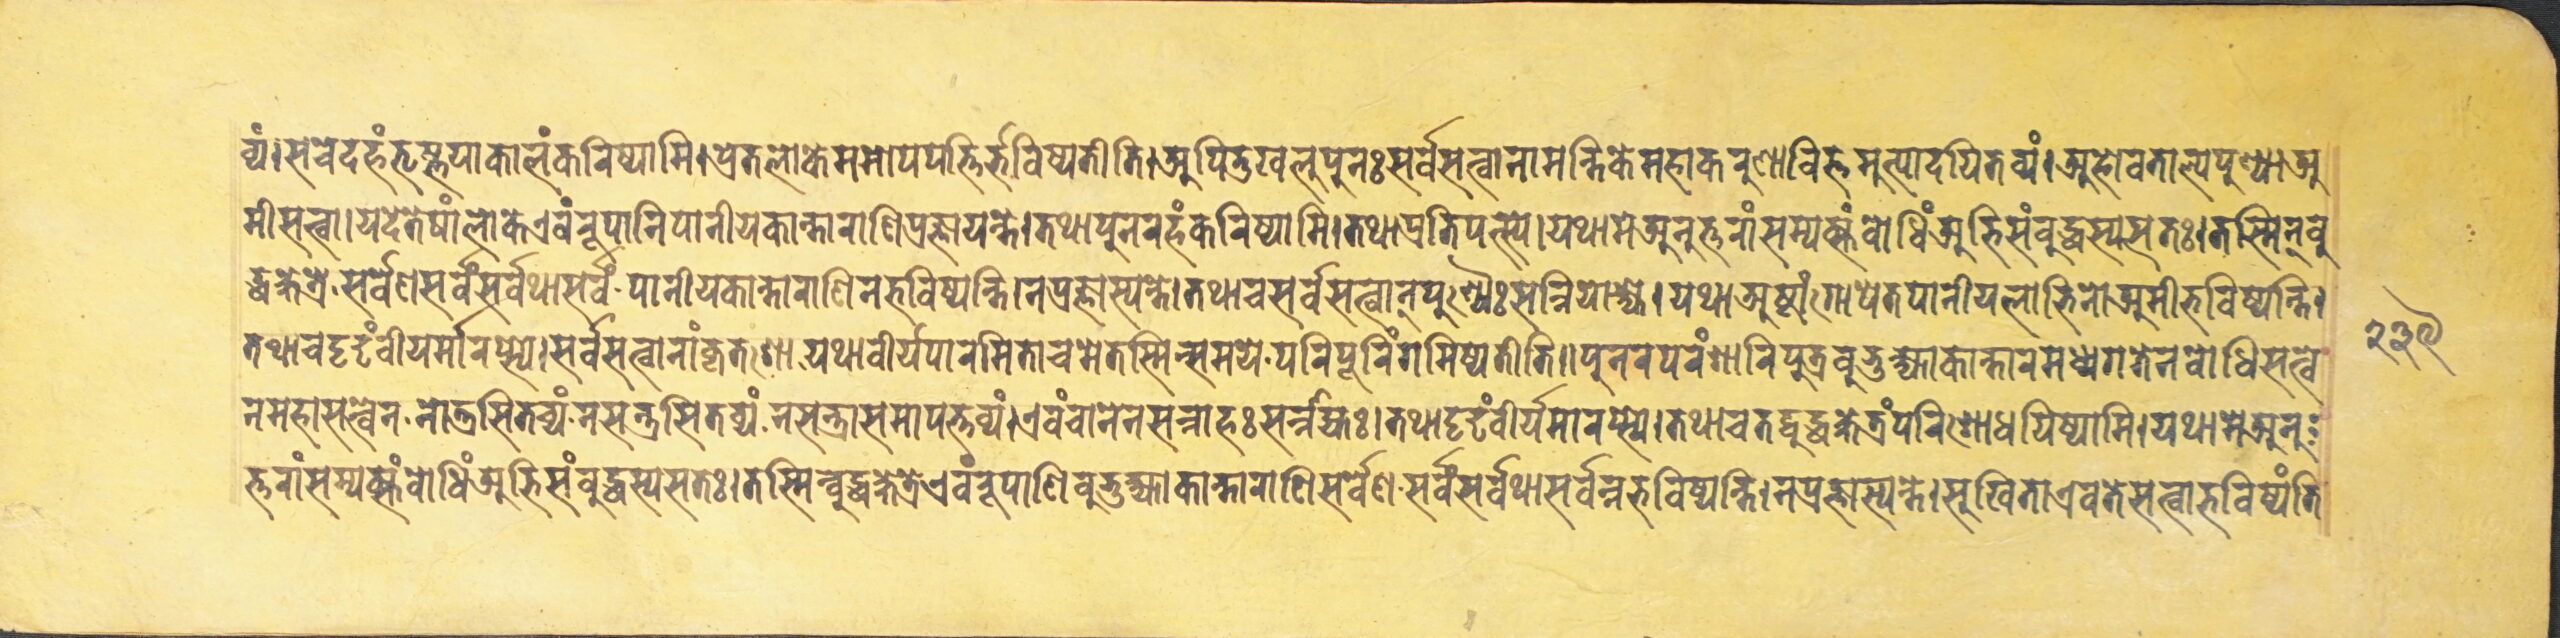 व्यं।सचेदहंतृष्णयाकालंकरिष्यामि।प्रेतलोकेममोपपत्तिर्भविष्यतीति।अपितुखलुपुनःसर्वसत्वानामन्तिकेमहाकरुणाचित्तमुत्पादयितव्यं।अहोवताल्पपुण्या।अ
मीसत्वा।यदेतेषांलोकेएवंरूपानिपानीयकान्ताराणिप्रज्ञायन्ते।तथापुनरहंकरिष्यामि।तथाप्रतिपत्स्ये।यथामेअनुत्तरांसम्यक्संबोधिंअभिसंबुद्धस्यसतः।तस्मिन्बु
द्धक्षेत्रे.सर्वेणसर्वंसर्वथासर्वं.पानीयकान्ताराणिनभविष्यन्ति।नप्रज्ञास्यन्ते।तथाचसर्वसत्वान्पुण्यैःसन्नियोक्ष्ये।यथाअष्टांगोपेतपानीयलाभिनोअमीभविष्यन्ति।
तथाचदृढंवीयर्मारप्स्ये।सर्वसत्वानांकृतशो.यथावीर्यपारमिताचमेतस्मिन्समये.परिपूरिंगमिष्यतीति॥पुनरपरंशारिपुत्रबुभुक्ष्याकान्तारमध्यगतेनबोधिसत्वे
नमहासत्वेन.नोत्रसितव्यं.नसन्त्रसितव्यं.नसन्त्रासमापत्तव्यं।एवंचानेनसन्नाहःसर्न्नह्यः।तथादृढंवीर्यमारप्स्ये।तथाचतद्बुद्धक्षेत्रंपरिशोधयिष्यामि।यथामेअनु
त्तरांसम्यक्संबोधिंअभिसंबुद्धस्यसतः।तस्मिन्बुद्धक्षेत्रेएवंरूपाणिबुभुक्ष्याकान्ताराणिसर्वेण.सर्वंसर्वथासर्वन्नभविष्यन्ति।नप्रज्ञास्यन्ते।सुखिताएवतेसत्वाभविष्यंति
२३९